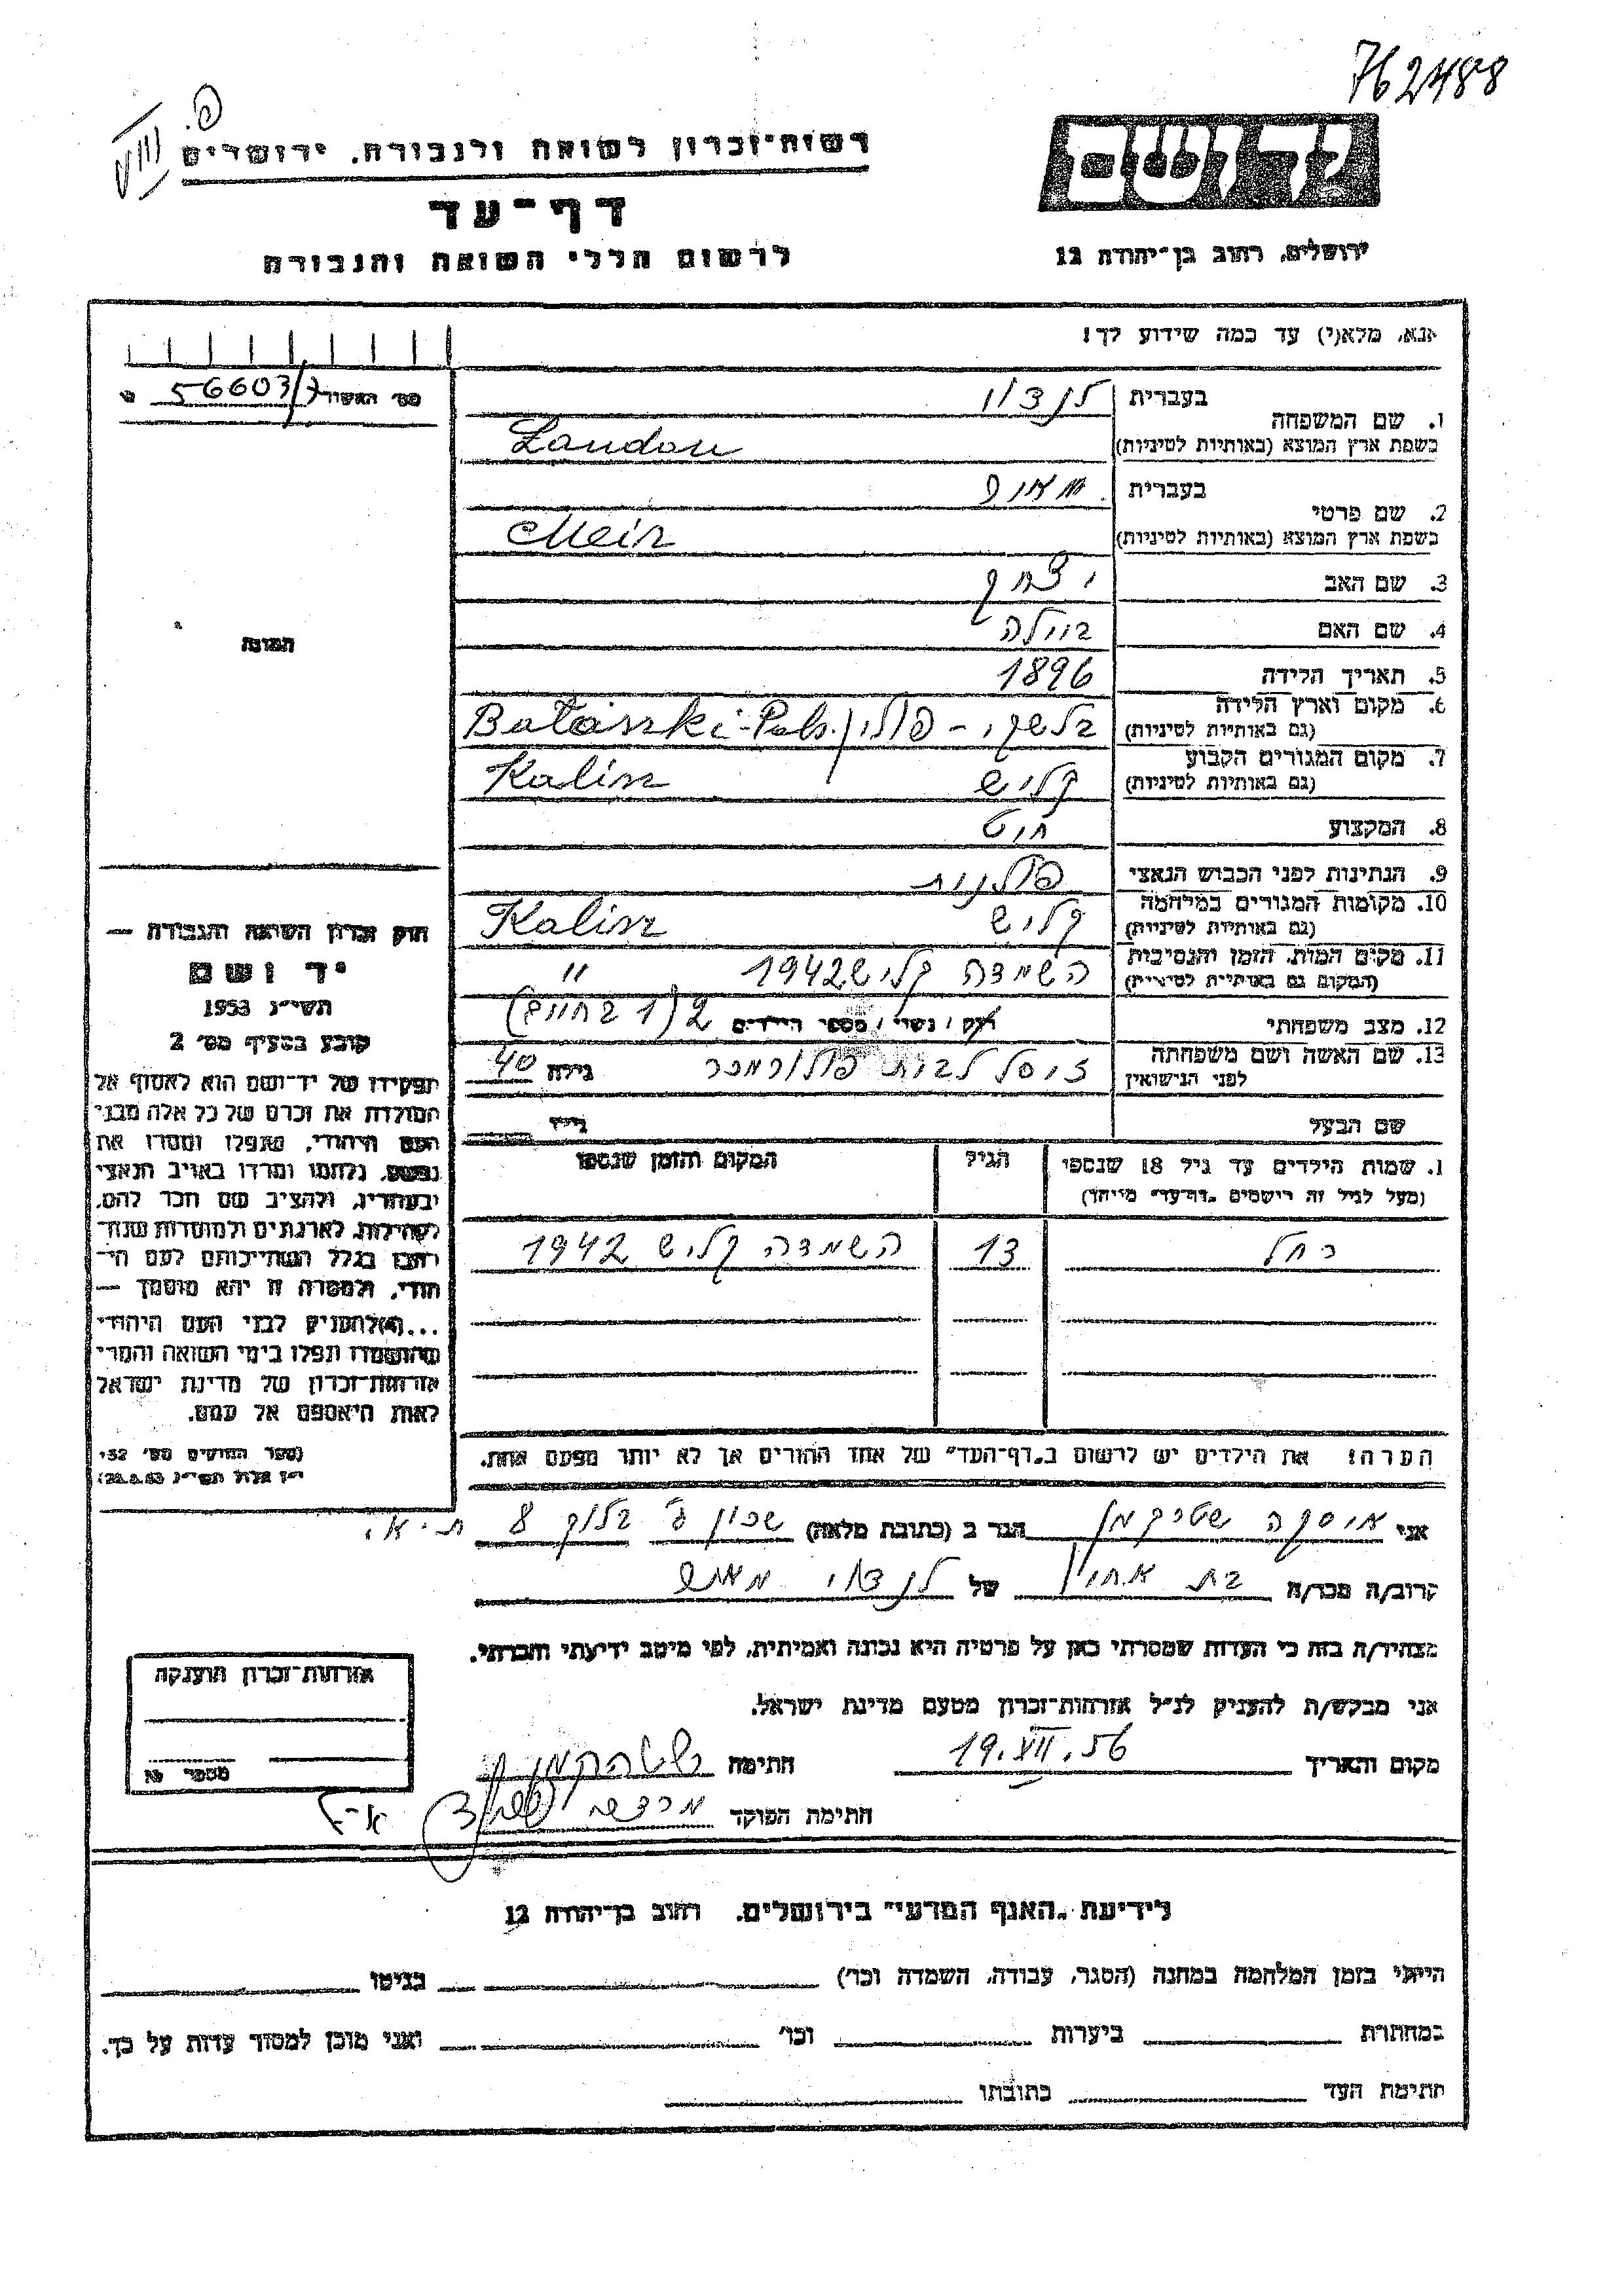 762488
רשות-זכרון לשואה ולגבורה, ירושלים
דף-עד
לרשום חללי השואה והגבורה
יד ושם
ירושלים, רחוב בן-יהודה 12
אנא, מלא(י) עד כמה שידוע לך!
מס' האשור 56603/
1. שם המשפחה
בעברית
בשפת ארץ המוצא (באותיות לטיניות) Landou
2. שם פרטי
בעברית
בשפת ארץ המוצא (באותיות לטיניות) Meir
3. שם האב יצחק
4. שם האם
5. תאריך הלידה 1896
6. מקום וארץ הלידה
(גם באותיות לטיניות)
7. מקום המגורים הקבוע קליש Kalisz
(גם באותיות לטיניות)
8. המקצוע חיט
9. הנתינות לפני הכבוש הנאצי פולנית
10. מקומות המגורים במלחמה קליש Kalisz
(גם באותיות לטיניות)
11. מקום המות, הזמן והנסיבות השמדה קליש 1942 "
(המקום גם באותיות לטיניות)
12. מצב משפחתי רוק / נשוי / מספר הילדים 2 (1 בחיים)
13. שם האשה ושם משפחתה
לפני הנישואין
גילה 40
שם הבעל גילו
1. שמות הילדים עד גיל 18 שנספו
(מעל לגיל זה רישמים "דף-עד" מיוחד)
הגיל
המקום והזמן שנספו
רחל 13 השמדה קליש 1942
הערה: את הילדים יש לרשום ב"דף-העד" של אחד ההורים אך לא יותר מפעם אחת.
התמונה
חוק זכרון השואה והגבורה —
יד ושם
תשי"ג 1953
קובע בסעיף מס' 2
תפקידו של יד-ושם הוא לאסוף אל
המולדת את זכרם של כל אלה מבני
העם היהודי, שנפלו ומסרו את
נפשם, נלחמו ומרדו באויב הנאצי
ובעוזריו, ולהציב שם וזכר להם,
לקהילות, לארגונים ולמוסדות שנח-
רבו בגלל השתייכותם לעם הי-
הודי, ולמטרה זו יהא מוסמך —
...(4) להעניק לבני העם היהודי
שהושמדו ונפלו בימי השואה והמרי
אזרחות-זכרון של מדינת ישראל
לאות היאספם אל עמם.
(ספר החוקים מס' 132,
י"ז אלול תשי"ג 28.8.53)
אני הגר ב (כתובת מלאה) שכון ג' בלוק 8 ת"א.
קרוב/ה מכר/ה בת אחיו של
מצהיר/ה בזה כי העדות שמסרתי כאן על פרטיה היא נכונה ואמיתית, לפי מיטב ידיעתי והכרתי.
אני מבקש/ת להעניק לנ"ל אזרחות-זכרון מטעם מדינת ישראל.
מקום והאריך 19.VII.56 חתימה
חתימת הפוקד
אזרחות-זכרון הוענקה
מספר
לידיעת "האגף המדעי" בירושלים, רחוב בן-יהודה 12
הייתי בזמן המלחמה במחנה (הסגר, עבודה, השמדה וכו') בגיטו
במחתרת ביערות וכו' ואני מוכן למסור עדות על כך.
חתימת העד כתובתו